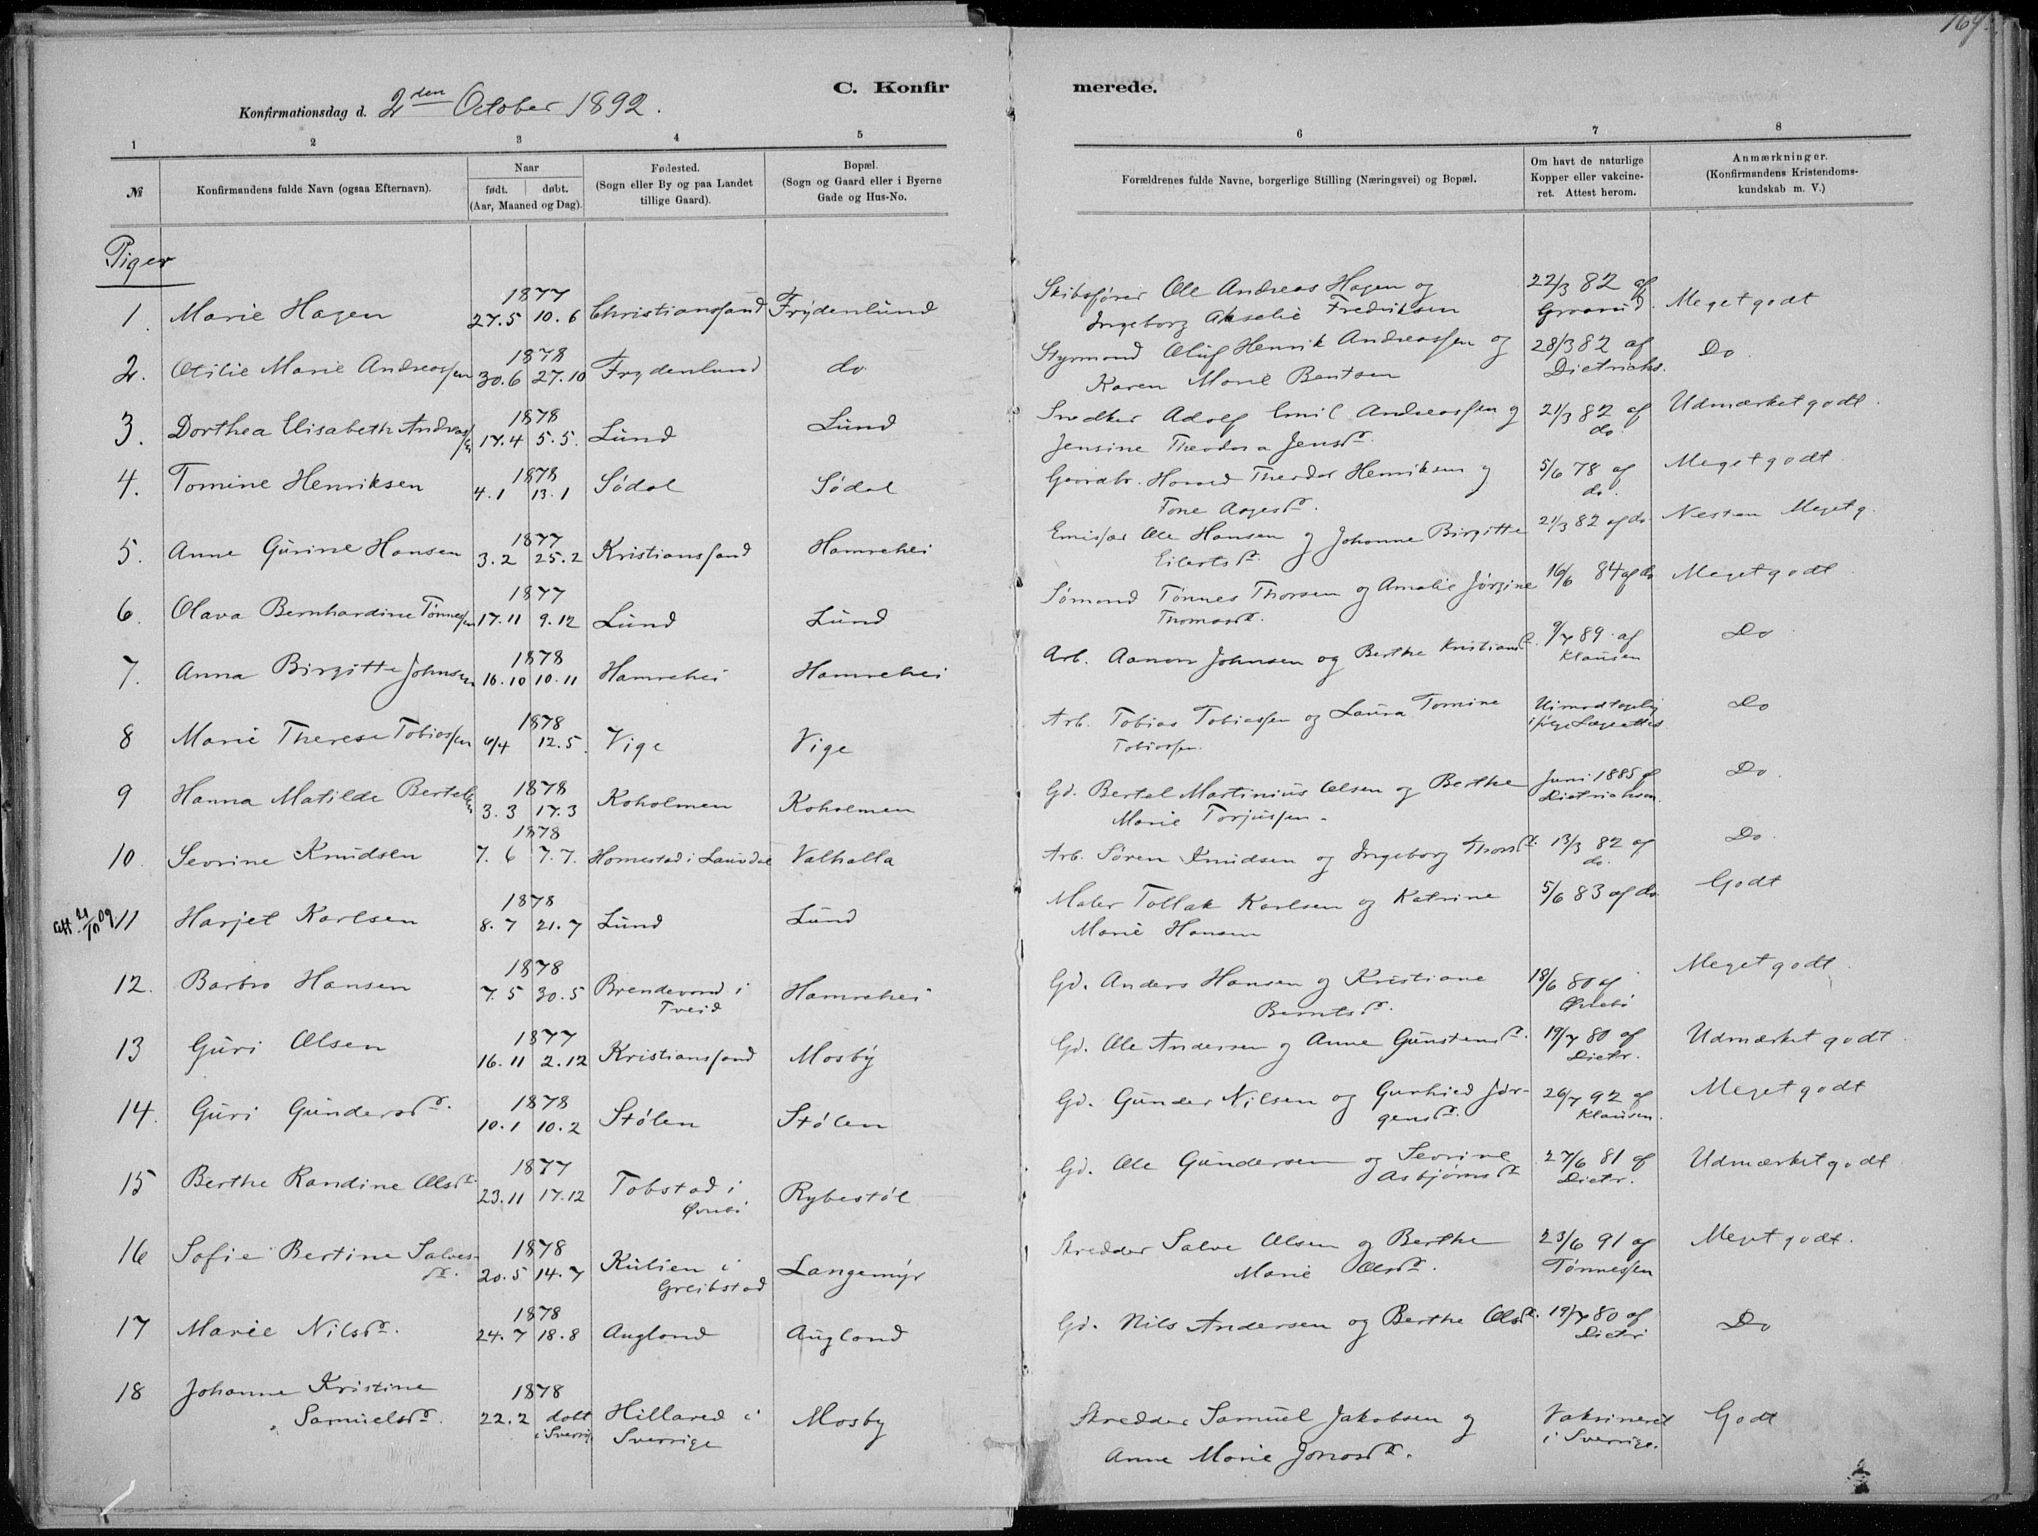 164.
C. Konfirmerede.
Konfirmationsdag d. 2den October 1892.
1 2 3 4 5 6 7 8
№ Konfirmandens fulde Navn (ogsaa Efternavn).
Naar født. døbt. (Aar, Maaned og Dag).
Fødested. (Sogn eller By og paa Landet tillige Gaard).
Bopæl. (Sogn og Gaard eller i Byerne Gade og Hus-No.
Forældrenes fulde Navne, borgerlige Stilling (Næringsvei) og Bopæl.
Om havt de naturlige Kopper eller vakcineret. Attest herom.
Anmærkninger. (Konfirmandens Kristendomskundskab m. V.)
Piger
1. Marie Hagen 1877 27.5 10.6 Christianssand Frydenlund Skibsfører Ole Andreas Hagen og 22/3 82 af Meget godt
Ingeborg Akselie Fredriksen
2. Otilie Marie Andreassen 1878 30.6 27.10 Frydenlund do Styrmand Oluf Henrik Andreassen og 28/3 82 af Do
Karen Marie Bentsen Dietrichs.
3. Dorthea Elisabeth Andreassen 1878 17.4 5.5. Lund Lund Snedker Adolf Emil Andreassen og 21/3 82 af Udmærket godt.
Jensine Theodora Jensd. do.
4. Tomine Henriksen 1878 4.1 13.1 Sødal Sødal Gaardbr. Theodor Henriksen og 5/6 78 af Meget godt
Tone Aagesd. do.
5. Anne Gurine Hansen 1877 3.2 25.2 Kristianssand Hamrehei Emissær Ole Hansen og Johanne Birgitte 21/3 82 af do Nesten Meget g.
Eilertsd.
6. Olava Bernhardine Tønnessen 1877 17.11 9.12 Lund Lund Sømand Tønnes Thorsen og Amalie Jørgine 16/6 84 af do Meget godt
Thomasd.
7. Anna Birgitte Johnsen 1878 16.10 10.11 Hamrehei Hamrehei Arb. Aanon Johnsen og Berthe Kristiansd. 9/7 89 af Do
Klausen
8 Marie Therese Tobiassen 1878 6/4 12.5. Vige Vige Arb. Tobias Tobiassen og Laura Tomine Uimodtagelig Do
Tobiassen. ifølge Lægeattest
9 Hanna Matilde Bertelsen 1878 3.3 17.3 Koholmen Koholmen Gd. Bertel Martinius Olsen og Berthe Juni 1885 af Do
Marie Torjussen. Dietrichsen
10. Sevrine Knudsen 1878 7.6 7.7. Homestad i Laudal Valhalla Arb. Søren Knudsen og Ingeborg Thorsd. 13/3 82 af Do
do.
att. 21/10 09 11 Harjet Karlsen 1878 8.7 21.7 Lund Lund Maler Tollak Karlsen og Katrine 5/6 83 af do Godt
Marie Hansen
12. Barbro Hansen 1878 7.5 30.5 Hamrehei Gd. Anders Hansen og Kristiane 18/6 80 af Meget godt
i Tveid Berntsd. Øvrebø
13 Guri Olsen 1877 16.11 2.12 Kristianssand Mosby Gd. Ole Andersen og Anne Gunstensd. 19/7 80 af Udmærket godt.
Dietr.
14. Guri Gundersd. 1878 10.1 10.2 Stølen Stølen Gd. Gunder Nilsen og Gurhied Jør- 26/7 92 af Meget godt
gensd. Klausen.
15 Berthe Randine Olsd. 1877 23.11 17.12 Tobstad i Rybestøl Gd. Ole Gundersen og Sevrine 27/6 81 af Udmærket godt
Øvrebø Asbjørnsd. Dietr.
16 Sofie Bertine Salves- 1878 20.5 14.7 Kulien i Langemyr Skredder Salve Olsen og Berthe 23/6 91 af Meget godt.
d. Greibstad Marie Olsd. Tønnessen
17 Marie Nilsd. 1878 24.7 18.8 Augland Augland Gd. Nils Andersen og Berthe Olsd. 19/7 80 af Do
Dietr
18 Johanne Kristine 1878 22.2 døbt Hillared i Mosby Skredder Samuel Jakobsen og Vaksineret Godt
Samuelsd. i Sverrig Sverrige Anne Marie Jonasd. i Sverrige.